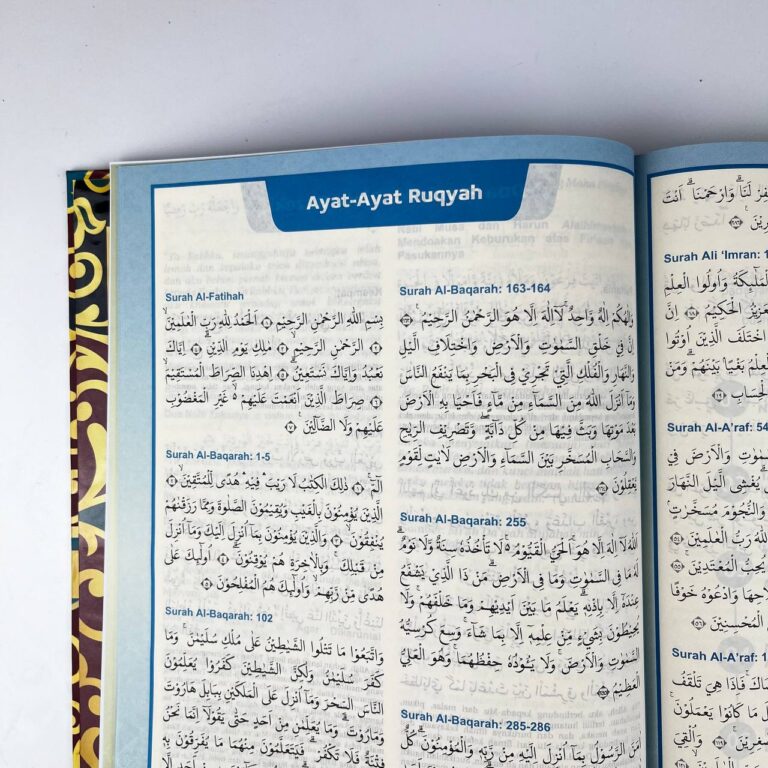 Ayat-Ayat Ruqyah
Surah Al-Fatihah
بِسْمِ اللّٰهِ الرَّحْمٰنِ الرَّحِيْمِ ۝١ اَلْحَمْدُ لِلّٰهِ رَبِّ الْعٰلَمِيْنَۙ
۝٢ الرَّحْمٰنِ الرَّحِيْمِۙ ۝٣ مٰلِكِ يَوْمِ الدِّيْنِۗ ۝٤ اِيَّاكَ
نَعْبُدُ وَاِيَّاكَ نَسْتَعِيْنُۗ ۝٥ اِهْدِنَا الصِّرَاطَ الْمُسْتَقِيْمَۙ
۝٦ صِرَاطَ الَّذِيْنَ اَنْعَمْتَ عَلَيْهِمْ ەۙ غَيْرِ الْمَغْضُوْبِ
عَلَيْهِمْ وَلَا الضَّاۤلِّيْنَ ۝٧
Surah Al-Baqarah: 1-5
الۤمّۤۚ ۝١ ذٰلِكَ الْكِتٰبُ لَا رَيْبَۛ فِيْهِۛ هُدًى لِّلْمُتَّقِيْنَۙ ۝٢
الَّذِيْنَ يُؤْمِنُوْنَ بِالْغَيْبِ وَيُقِيْمُوْنَ الصَّلٰوةَ وَمِمَّا رَزَقْنٰهُمْ
يُنْفِقُوْنَۙ ۝٣ وَالَّذِيْنَ يُؤْمِنُوْنَ بِمَآ اُنْزِلَ اِلَيْكَ وَمَآ اُنْزِلَ
مِنْ قَبْلِكَۚ وَبِالْاٰخِرَةِ هُمْ يُوْقِنُوْنَۗ ۝٤ اُولٰۤىِٕكَ عَلٰى
هُدًى مِّنْ رَّبِّهِمْۙ وَاُولٰۤىِٕكَ هُمُ الْمُفْلِحُوْنَ ۝٥
Surah Al-Baqarah: 102
وَاتَّبَعُوْا مَا تَتْلُوا الشَّيٰطِيْنُ عَلٰى مُلْكِ سُلَيْمٰنَۚ وَمَا
كَفَرَ سُلَيْمٰنُ وَلٰكِنَّ الشَّيٰطِيْنَ كَفَرُوْا يُعَلِّمُوْنَ
النَّاسَ السِّحْرَ وَمَآ اُنْزِلَ عَلَى الْمَلَكَيْنِ بِبَابِلَ هَارُوْتَ
وَمَارُوْتَۗ وَمَا يُعَلِّمٰنِ مِنْ اَحَدٍ حَتّٰى يَقُوْلَآ اِنَّمَا نَحْنُ
فِتْنَةٌ فَلَا تَكْفُرْۗ فَيَتَعَلَّمُوْنَ مِنْهُمَا مَا يُفَرِّقُوْنَ بِهٖ
Surah Al-Baqarah: 163-164
وَاِلٰهُكُمْ اِلٰهٌ وَّاحِدٌۚ لَآ اِلٰهَ اِلَّا هُوَ الرَّحْمٰنُ الرَّحِيْمُ ۝١٦٣
اِنَّ فِيْ خَلْقِ السَّمٰوٰتِ وَالْاَرْضِ وَاخْتِلَافِ الَّيْلِ
وَالنَّهَارِ وَالْفُلْكِ الَّتِيْ تَجْرِيْ فِى الْبَحْرِ بِمَا يَنْفَعُ النَّاسَ
وَمَآ اَنْزَلَ اللّٰهُ مِنَ السَّمَاۤءِ مِنْ مَّاۤءٍ فَاَحْيَا بِهِ الْاَرْضَ
بَعْدَ مَوْتِهَا وَبَثَّ فِيْهَا مِنْ كُلِّ دَاۤبَّةٍۖ وَّتَصْرِيْفِ الرِّيٰحِ
وَالسَّحَابِ الْمُسَخَّرِ بَيْنَ السَّمَاۤءِ وَالْاَرْضِ لَاٰيٰتٍ لِّقَوْمٍ
يَّعْقِلُوْنَ ۝١٦٤
Surah Al-Baqarah: 255
اَللّٰهُ لَآ اِلٰهَ اِلَّا هُوَۚ اَلْحَيُّ الْقَيُّوْمُ ەۚ لَا تَأْخُذُهٗ سِنَةٌ وَّلَا نَوْمٌۗ
لَهٗ مَا فِى السَّمٰوٰتِ وَمَا فِى الْاَرْضِۗ مَنْ ذَا الَّذِيْ يَشْفَعُ
عِنْدَهٗٓ اِلَّا بِاِذْنِهٖۗ يَعْلَمُ مَا بَيْنَ اَيْدِيْهِمْ وَمَا خَلْفَهُمْۚ وَلَا
يُحِيْطُوْنَ بِشَيْءٍ مِّنْ عِلْمِهٖٓ اِلَّا بِمَا شَاۤءَۚ وَسِعَ كُرْسِيُّهُ
السَّمٰوٰتِ وَالْاَرْضَۚ وَلَا يَـُٔوْدُهٗ حِفْظُهُمَاۚ وَهُوَ الْعَلِيُّ
الْعَظِيْمُ ۝٢٥٥
Surah Al-Baqarah: 285-286
اٰمَنَ الرَّسُوْلُ بِمَآ اُنْزِلَ اِلَيْهِ مِنْ رَّبِّهٖ وَالْمُؤْمِنُوْنَۗ كُلٌّ
لَنَاۗ وَارْحَمْنَاۗ اَنْتَ
Surah Ali 'Imran: 1
وَاُولُوا الْعِلْمِ
الْحَكِيْمُ ۝ اِنَّ
اخْتَلَفَ الَّذِيْنَ اُوْتُوا
بَغْيًاۢ بَيْنَهُمْۗ وَمَنْ
الْحِسَابِ
Surah Al-A'raf: 54
وَالْاَرْضَ فِيْ
يُغْشِى الَّيْلَ النَّهَارَ
وَالنُّجُوْمَ مُسَخَّرٰتٍۢ
اللّٰهُ رَبُّ الْعٰلَمِيْنَ
يُحِبُّ الْمُعْتَدِيْنَۚ
وَادْعُوْهُ خَوْفًا
الْمُحْسِنِيْنَ
Surah Al-A'raf: 1
فَاِذَا هِيَ تَلْقَفُ
مَا كَانُوْا يَعْمَلُوْنَۚ
وَاُلْقِيَ